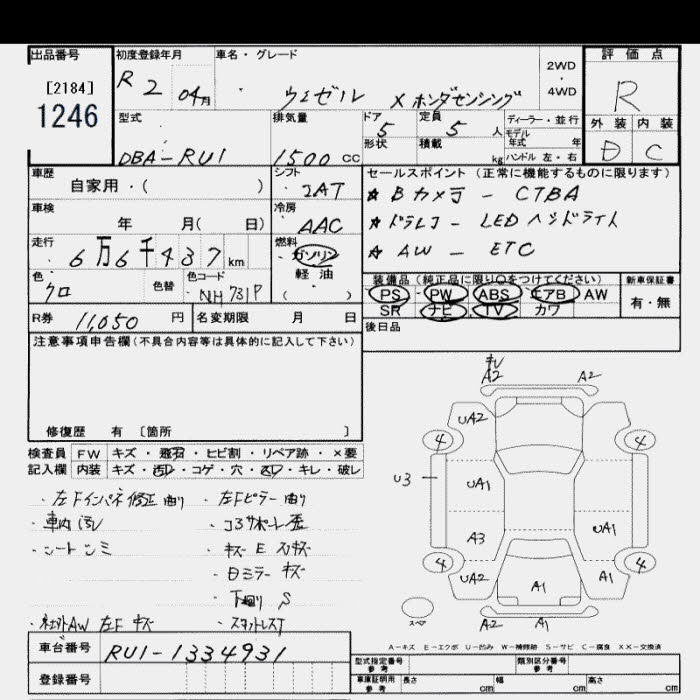 出品番号 初度登録年月 車名・グレード 評価点
[2184]
1246
R 2 04月 ヴェゼル X ホンダセンシング 2WD・4WD R
型式 排気量 ドア 定員 ディーラー・並行 外装 内装
DBA-RU1 1500 cc 5 5 人 モデル年式 年 D C
形状 積載 kg ハンドル 左・右
車歴 自家用・( ) シフト 2AT セールスポイント (正常に機能するものに限ります)
★ Bカメラ - CTBA
車検 年 月( 日) 冷房 AAC
★ ドラレコ - LEDヘッドライト
走行 6万6千437km 燃料 ガソリン・軽油・( )
★ AW - ETC
色 クロ 色替 色コード NH731P
装備品 (純正品に限り○をつけてください) 新車保証書
PS PW ABS エアB AW 有・無
SR ナビ TV カワ
R券 11,050 円 名変期限 月 日
後日品
注意事項申告欄(不具合内容等は具体的に記入して下さい)
修復歴 有 〔箇所 〕
検査員 FW キズ・飛石・ヒビ割・リペア跡・×要
記入欄 内装 キズ・汚レ・コゲ・穴・凹レ・キレ・破レ
・左Fインパネ修正曲り ・左Fピラー曲り
・車内汚レ ・コアサポート歪
・シートシミ ・キズ E スリキズ
・日ミラーキズ
・下廻り S
・社外AW 左F キズ
車台番号 RU1-1334931
登録番号
キレ
A2 A2
UA2
4 4
U3 UA1
UA1
A3
4 4
UA2 A1 A1
A2 A1
スペア
A-キズ E-エクボ U-凹み W-補修跡 S-サビ C-腐食 XX-交換済
型式指定番号 参考 類別区分番号 参考
車庫証明用 参考 長さ cm 幅 cm 高さ cm